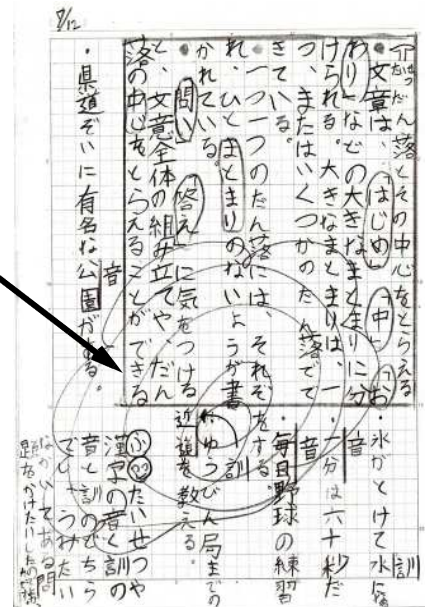 9/12
だん落とその中心をとらえる
・文章は、「はじめ」「中」「お
わり」などの大きなまとまりに分
けられる。大きなまとまりは、一
つ、またはいくつかのだん落でで
きている。
・一つ一つのだん落には、それぞ
れ、ひとまとまりのないようが書
かれている。
・問い 答え に気をつける
と、文意全体の組み立てや、だん
落の中心をとらえることができる
・県道ぞいに有名な公園がある。
音
・氷がとけて水に
訓
・一分は六十秒だ
音
・毎日野球の練習
をする
音
訓
・ゆうびん局までの
近道を教える。
漢字の音と訓の
音と訓のどちら